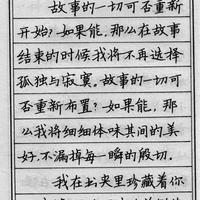 故事的一切可否重新
开始?如果能,那么在故事
结束的时候我将不再选择
孤独与寂寞。故事的一切可
否重新布置?如果能,那
么我将细细体味其间的美
好,不漏掉每一瞬的殷切.
我在土夹里珍藏着你